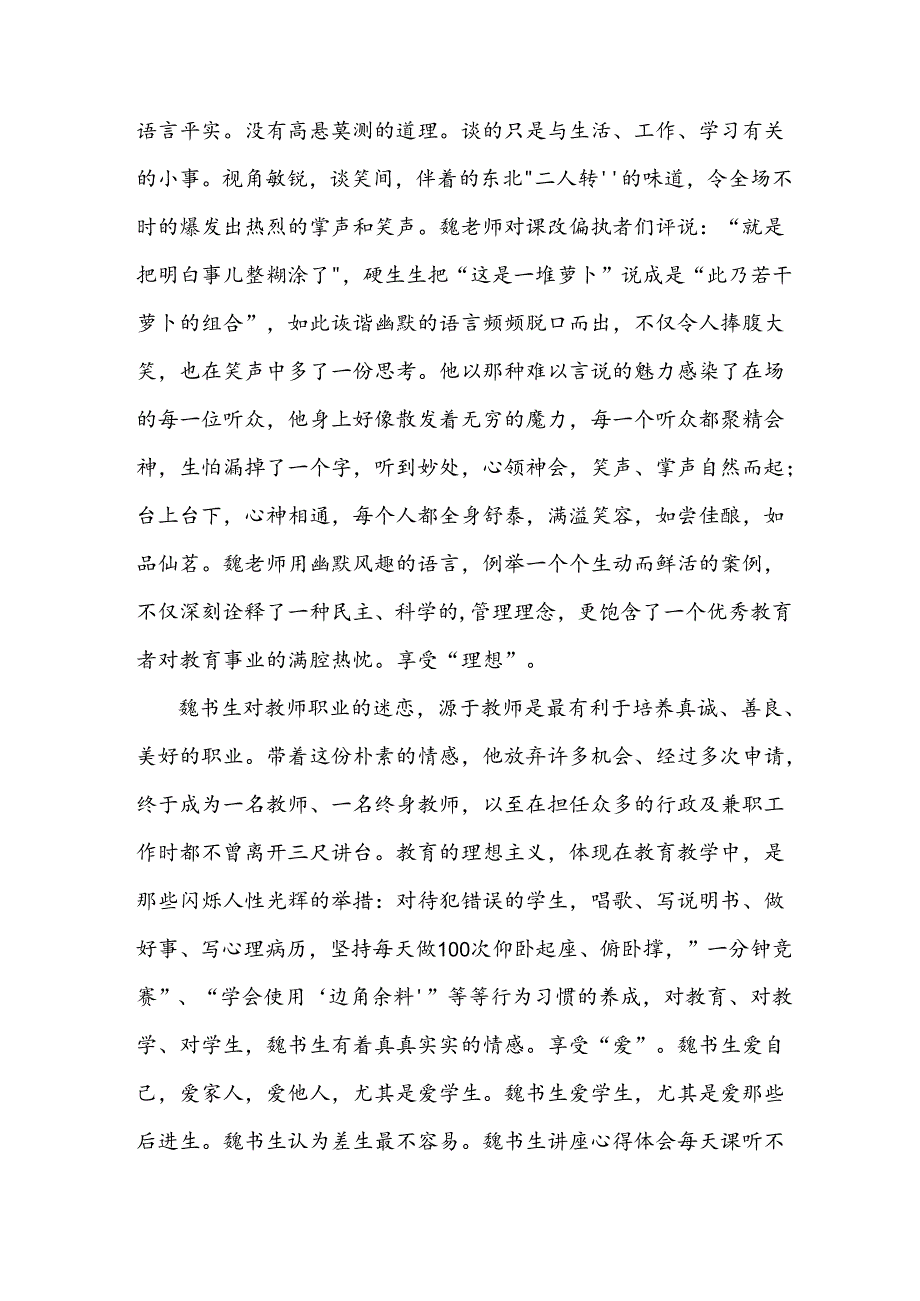 语言平实。没有高悬莫测的道理。谈的只是与生活、工作、学习有关
的小事。视角敏锐，谈笑间，伴着的东北"二人转''的味道，令全场不
时的爆发出热烈的掌声和笑声。魏老师对课改偏执者们评说：“就是
把明白事儿整糊涂了"，硬生生把“这是一堆萝卜”说成是“此乃若干
萝卜的组合”，如此诙谐幽默的语言频频脱口而出，不仅令人捧腹大
笑，也在笑声中多了一份思考。他以那种难以言说的魅力感染了在场
的每一位听众，他身上好像散发着无穷的魔力，每一个听众都聚精会
神，生怕漏掉了一个字，听到妙处，心领神会，笑声、掌声自然而起；
台上台下，心神相通，每个人都全身舒泰，满溢笑容，如尝佳酿，如
品仙茗。魏老师用幽默风趣的语言，例举一个个生动而鲜活的案例，
不仅深刻诠释了一种民主、科学的,管理理念，更饱含了一个优秀教育
者对教育事业的满腔热忱。享受“理想”。
魏书生对教师职业的迷恋，源于教师是最有利于培养真诚、善良、
美好的职业。带着这份朴素的情感，他放弃许多机会、经过多次申请，
终于成为一名教师、一名终身教师，以至在担任众多的行政及兼职工
作时都不曾离开三尺讲台。教育的理想主义，体现在教育教学中，是
那些闪烁人性光辉的举措：对待犯错误的学生，唱歌、写说明书、做
好事、写心理病历，坚持每天做100次仰卧起座、俯卧撑，”一分钟竞
赛”、“学会使用‘边角余料'”等等行为习惯的养成，对教育、对教
学、对学生，魏书生有着真真实实的情感。享受“爱”。魏书生爱自
己，爱家人，爱他人，尤其是爱学生。魏书生爱学生，尤其是爱那些
后进生。魏书生认为差生最不容易。魏书生讲座心得体会每天课听不